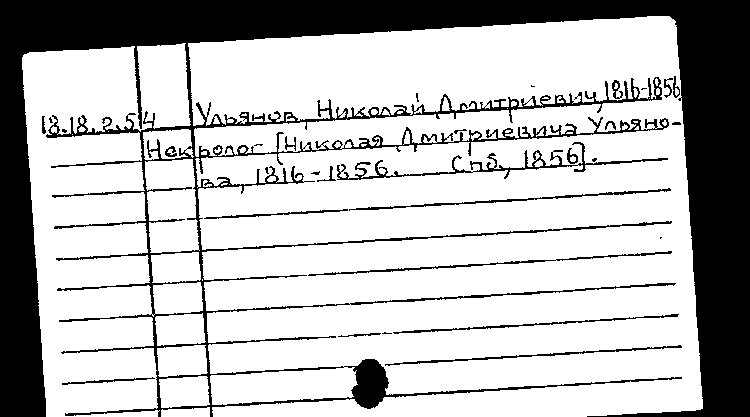 18.18.2.54 Ульянов, Николай Дмитриевич, 1816-1856
Некролог [Николая Дмитриевича Ульяно-
ва, 1816-1856. Спб., 1856].